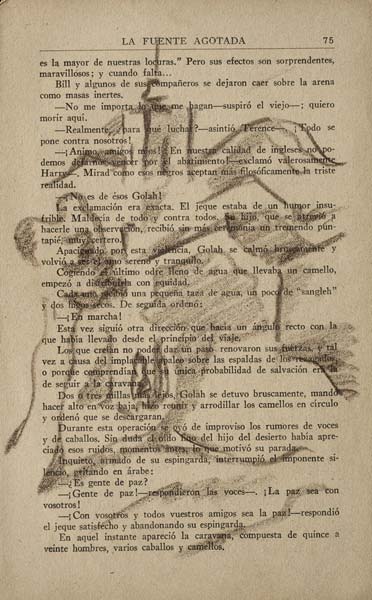 LA FUENTE AGOTADA 75
es la mayor de nuestras locuras.” Pero sus efectos son sorprendentes,
maravillosos; y cuando falta...
Bill y algunos de sus compañeros se dejaron caer sobre la arena
como masas inertes.
—No me importa lo que me hagan—suspiró el viejo—; quiero
morir aquí.
—Realmente, ¿para qué luchar?—asintió Terence—. ¡Todo se
pone contra nosotros!
—¡Animo, amigos míos! En nuestra calidad de ingleses no po-
demos dejarnos vencer por el abatimiento!—exclamó valerosamente
Harry—. Mirad como esos negros aceptan más filosóficamente la triste
realidad.
—¡No es de ésos Golah!
La exclamación era exacta. El jeque estaba de un humor insu-
frible. Maldecía de todo y contra todos. Su hijo, que se atrevió a
hacerle una observación, recibió sin más ceremonia un tremendo pun-
tapié, muy certero.
Apaciguado por esta violencia, Golah se calmó bruscamente y
volvió a ser el amo sereno y tranquilo.
Cogiendo el último odre lleno de agua que llevaba un camello,
empezó a distribuirla con equidad.
Cada uno recibió una pequeña taza de agua, un poco de “sangleh”
y dos higos secos. De seguida ordenó:
—¡En marcha!
Esta vez siguió otra dirección que hacía un ángulo recto con la
que había llevado desde el principio del viaje.
Los que creían no poder dar un paso renovaron sus fuerzas, y tal
vez a causa del implacable apaleo sobre las espaldas de los rezagados,
o porque comprendían que la única probabilidad de salvación era la
de seguir a la caravana.
Dos o tres millas más lejos, Golah se detuvo bruscamente, mandó
hacer alto en voz baja, hizo reunir y arrodillar los camellos en círculo
y ordenó que se descargaran.
Durante esta operación se oyó de improviso los rumores de voces
y de caballos. Sin duda el oído fino del hijo del desierto había apre-
ciado esos ruidos, momentos antes, lo que motivó su parada.
Inquieto, armado de su espingarda, interrumpió el imponente si-
lencio, gritando en árabe:
—¿Es gente de paz?
—¡Gente de paz!—respondieron las voces—. ¡La paz sea con
vosotros!
—¡Con vosotros y todos vuestros amigos sea la paz!—respondió
el jeque satisfecho y abandonando su espingarda.
En aquel instante apareció la caravana, compuesta de quince a
veinte hombres, varios caballos y camellos.